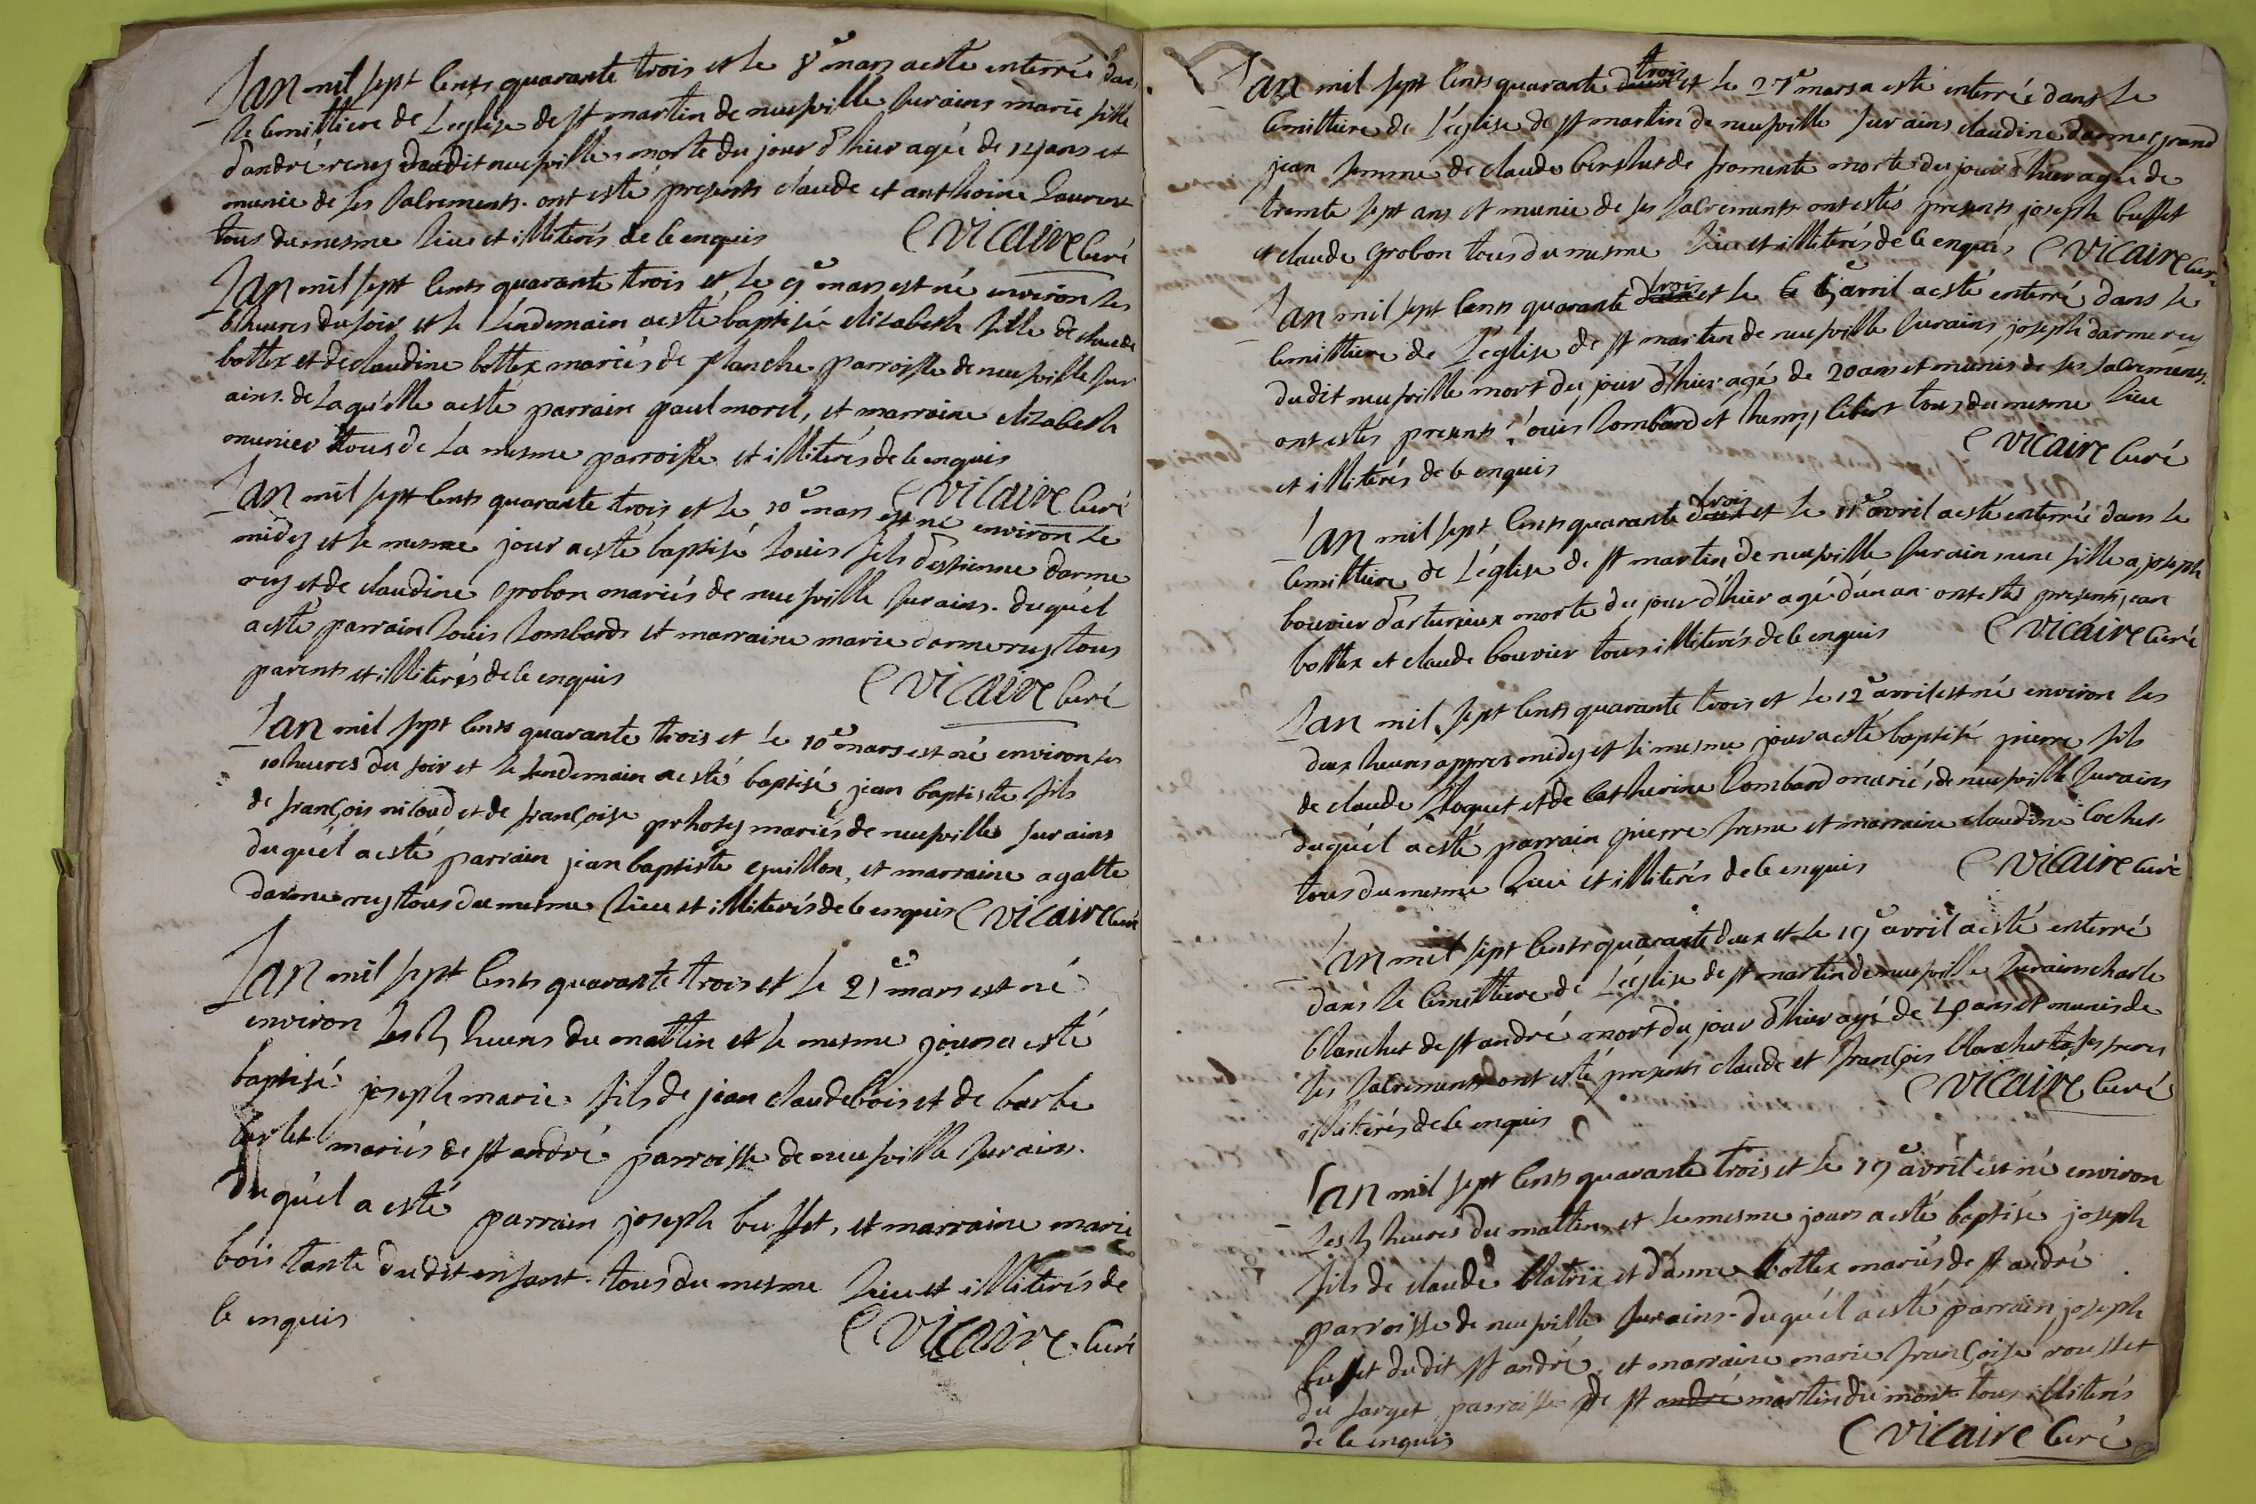 Lan mil sept cents quarante trois et le 8e mars a esté enterrée dans
le cemittiere de L'eglise de st martin de neufville sur ains marie fille
d'andré reny dudit neufville, morte du jour d'hier agée de 14 ans et
munie de ses sacrements. ont esté presents claude et anthoine Laurent
tous du mesme lieu et illiterés de ce enquis Cvicaire Curé
Lan mil sept cents quarante trois et le 9e mars est né environ les
6 heures du soir et le lendemain a esté baptisée elizabeth fille de claude
bottex et de claudine bottex mariés de planche parroisse de neufville sur
ains. de laquelle a esté parrain paul morel, et marraine elizabeth
munier tous de la mesme parroisse et illiterés de ce enquis
Cvicaire Curé
Lan mil sept cents quarante trois et le 10e mars est né environ le
midy et le mesme jour a esté baptisé Louis fils d'estienne darme
rey et de claudine grobon mariés de neufville sur ains. duquel
a esté parrain Louis Lombard et marraine marie darmerey tous
parents et illiterés de ce enquis Cvicaire Curé
Lan mil sept cents quarante trois et le 10e mars est né environ les
10 heures du soir et le lendemain a esté baptisé jean baptiste fils
de françois nicoud et de françoise mariés de neufville sur ains
duquel a esté parrain jean baptiste eguillon, et marraine agatte
darmerey tous du mesme lieu et illiterés de ce enquis Cvicaire Curé
Lan mil sept cents quarante trois et le 21e mars est né
environ les 5 heures du mattin et le mesme jour a esté
baptisé joseph marie fils de jean claude bois et de barbe
mariés de st andré parroisse de neufville sur ains.
duquel a esté parrain joseph buffet, et marraine marie
bois tante dudit enfant. tous du mesme lieu et illiterés de
ce enquis Cvicaire Curé
Lan mil sept cents quarante deux trois et le 27e mars a esté enterrée dans le
cemittiere de L'église de st martin de neufville sur ains claudine darmey grand
jean femme de claude berthet de fromente morte du jour d'hier agée de
trente sept ans et munie de ses sacrements ont estés presents joseph buffet
et claude grobon tous du mesme lieu et illiterés de ce enquis Cvicaire Curé
Lan mil sept cents quarante deux trois et le 5e avril a esté enterré dans le
cemittiere de L'église de st martin de neufville sur ains, joseph darmerey
dudit neufville mort du jour d'hier agé de 20 ans et munis de ses sacrements.
ont estes presents Louis Lombard et henry, tous du mesme lieu
et illiterés de ce enquis Cvicaire Curé
Lan mil sept cents quarante deux trois et le 11e avril a esté enterrée dans le
cemittiere de L'église de st martin de neufville sur ain une fille a joseph
bouvier d'arturieux morte du jour d'hier agé d'un an ont esté presents jean
bottex et claude bouvier tous illiterés de ce enquis Cvicaire Curé
Lan mil sept cents quarante trois et le 12e avril est né environ les
deux heures appres midy et le mesme jour a esté baptisé pierre fils
de claude floquet et de catherine Lombard mariés de neufville sur ains
duquél a esté parrain pierre frene et marraine claudine cochet
tous du mesme lieu et illiterés de ce enquis Cvicaire Curé
Lan mil sept cents quarante deux et le 19e avril a esté enterré
dans le cemittiere de L'église de st martin de neufville sur ains charle
blanchet de st andré mort du jour d'hier agé de 40 ans et munis de
ses sacrements ont esté presents claude et françois blanchet ses freres
illiterés de ce enquis Cvicaire Curé
Lan mil sept cents quarante trois et le 19e avril est né environ
les 5 heures du mattin, et le mesme jour a esté baptisé joseph
fils de claude blatrix et d'anne bottex mariés de st andré
parroisse de neufville sur ains. duquél a esté parrain joseph
buffet dudit st andré, et marraine marie françoise rousset
du farget parroisse de st andré martin du mont tous illiterés
de ce enquis Cvicaire Curé